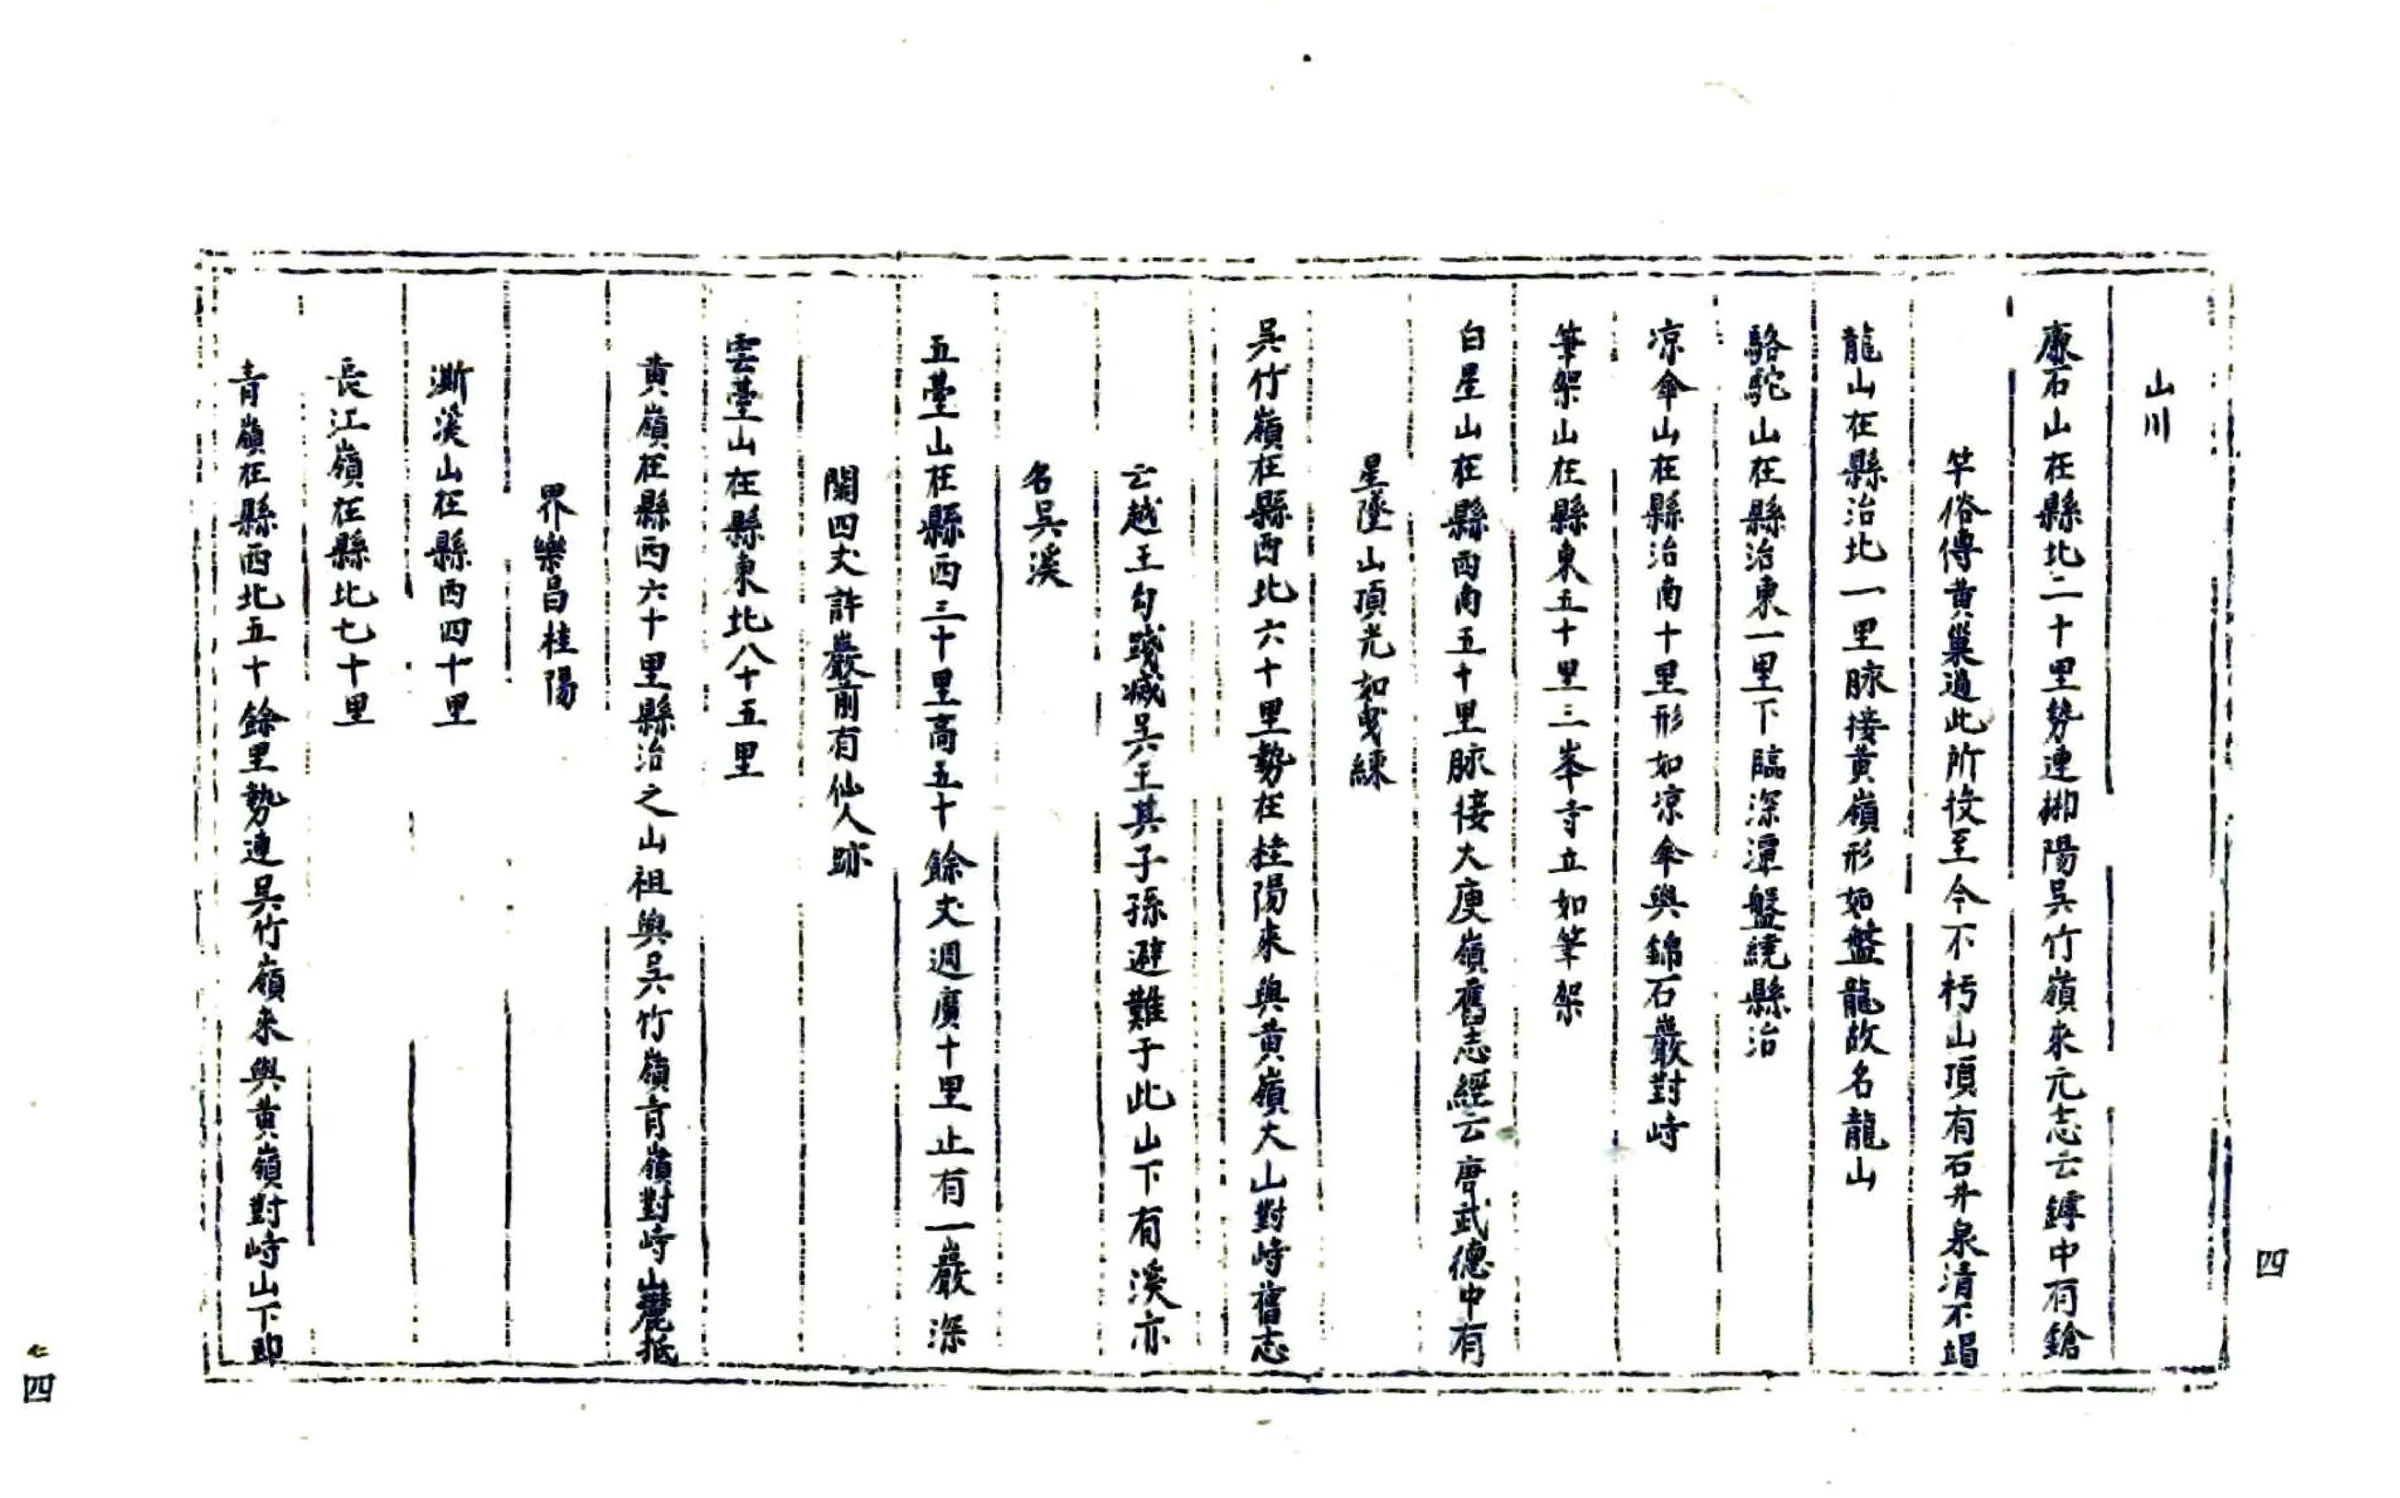 山川
廉石山在縣北二十里勢連郴陽吳竹嶺來元志云罅中有鎗
竿俗傳黃巢過此所投至今不朽山頂有石井泉清不竭
龍山在縣治北一里脉接黃嶺形如盤龍故名龍山
駱駝山在縣治東一里下臨深潭盤繞縣治
凉傘山在縣治南十里形如凉傘與錦石巖對峙
筆架山在縣東五十里三峯寺立如筆架
白星山在縣西南五十里脉接大庾嶺舊志經云唐武德中有
星墜山頂光如曳練
吳竹嶺在縣西北六十里勢在桂陽來與黃嶺大山對峙舊志
云越王勾踐滅吳王其子孫避難于此山下有溪亦
名吳溪
五臺山在縣西三十里高五十餘丈週廣十里止有一巖深
闊四丈許巖前有仙人跡
雲臺山在縣東北八十五里
黃嶺在縣西六十里縣治之山祖與吳竹嶺青嶺對峙山麓抵
界樂昌桂陽
澌溪山在縣西四十里
長江嶺在縣北七十里
青嶺在縣西北五十餘里勢連吳竹嶺來與黃嶺對峙山下即
四
四